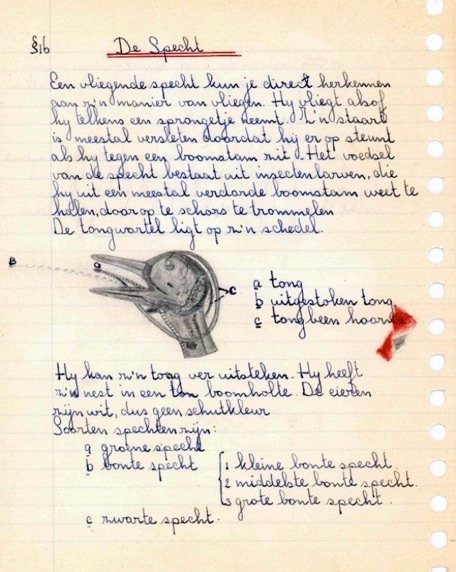 §16 De Specht
Een vliegende specht kun je direct herkennen
aan z'n manier van vliegen. Hy vliegt alsof
hy telkens een sprongetje neemt. Z'n staart
is meestal versleten doordat hij er op steunt
als hy tegen een boomstam zit. Het voedsel
van de specht bestaat uit insectenlarven, die
hy uit een meestal verdorde boomstam weet te
halen, door op te schors te trommelen
De tongwortel ligt op z'n schedel.
B a c
a tong
b uitgestoken tong
c tongbeen
Hy kan z'n tong ver uitsteken. Hy heeft
z'n nest in een boomholte. De eieren
zijn wit, dus geen schutkleur
Soorten spechten zijn:
a groene specht
b bonte specht
1 kleine bonte specht
2 middelste bonte specht.
3 grote bonte specht.
c zwarte specht.